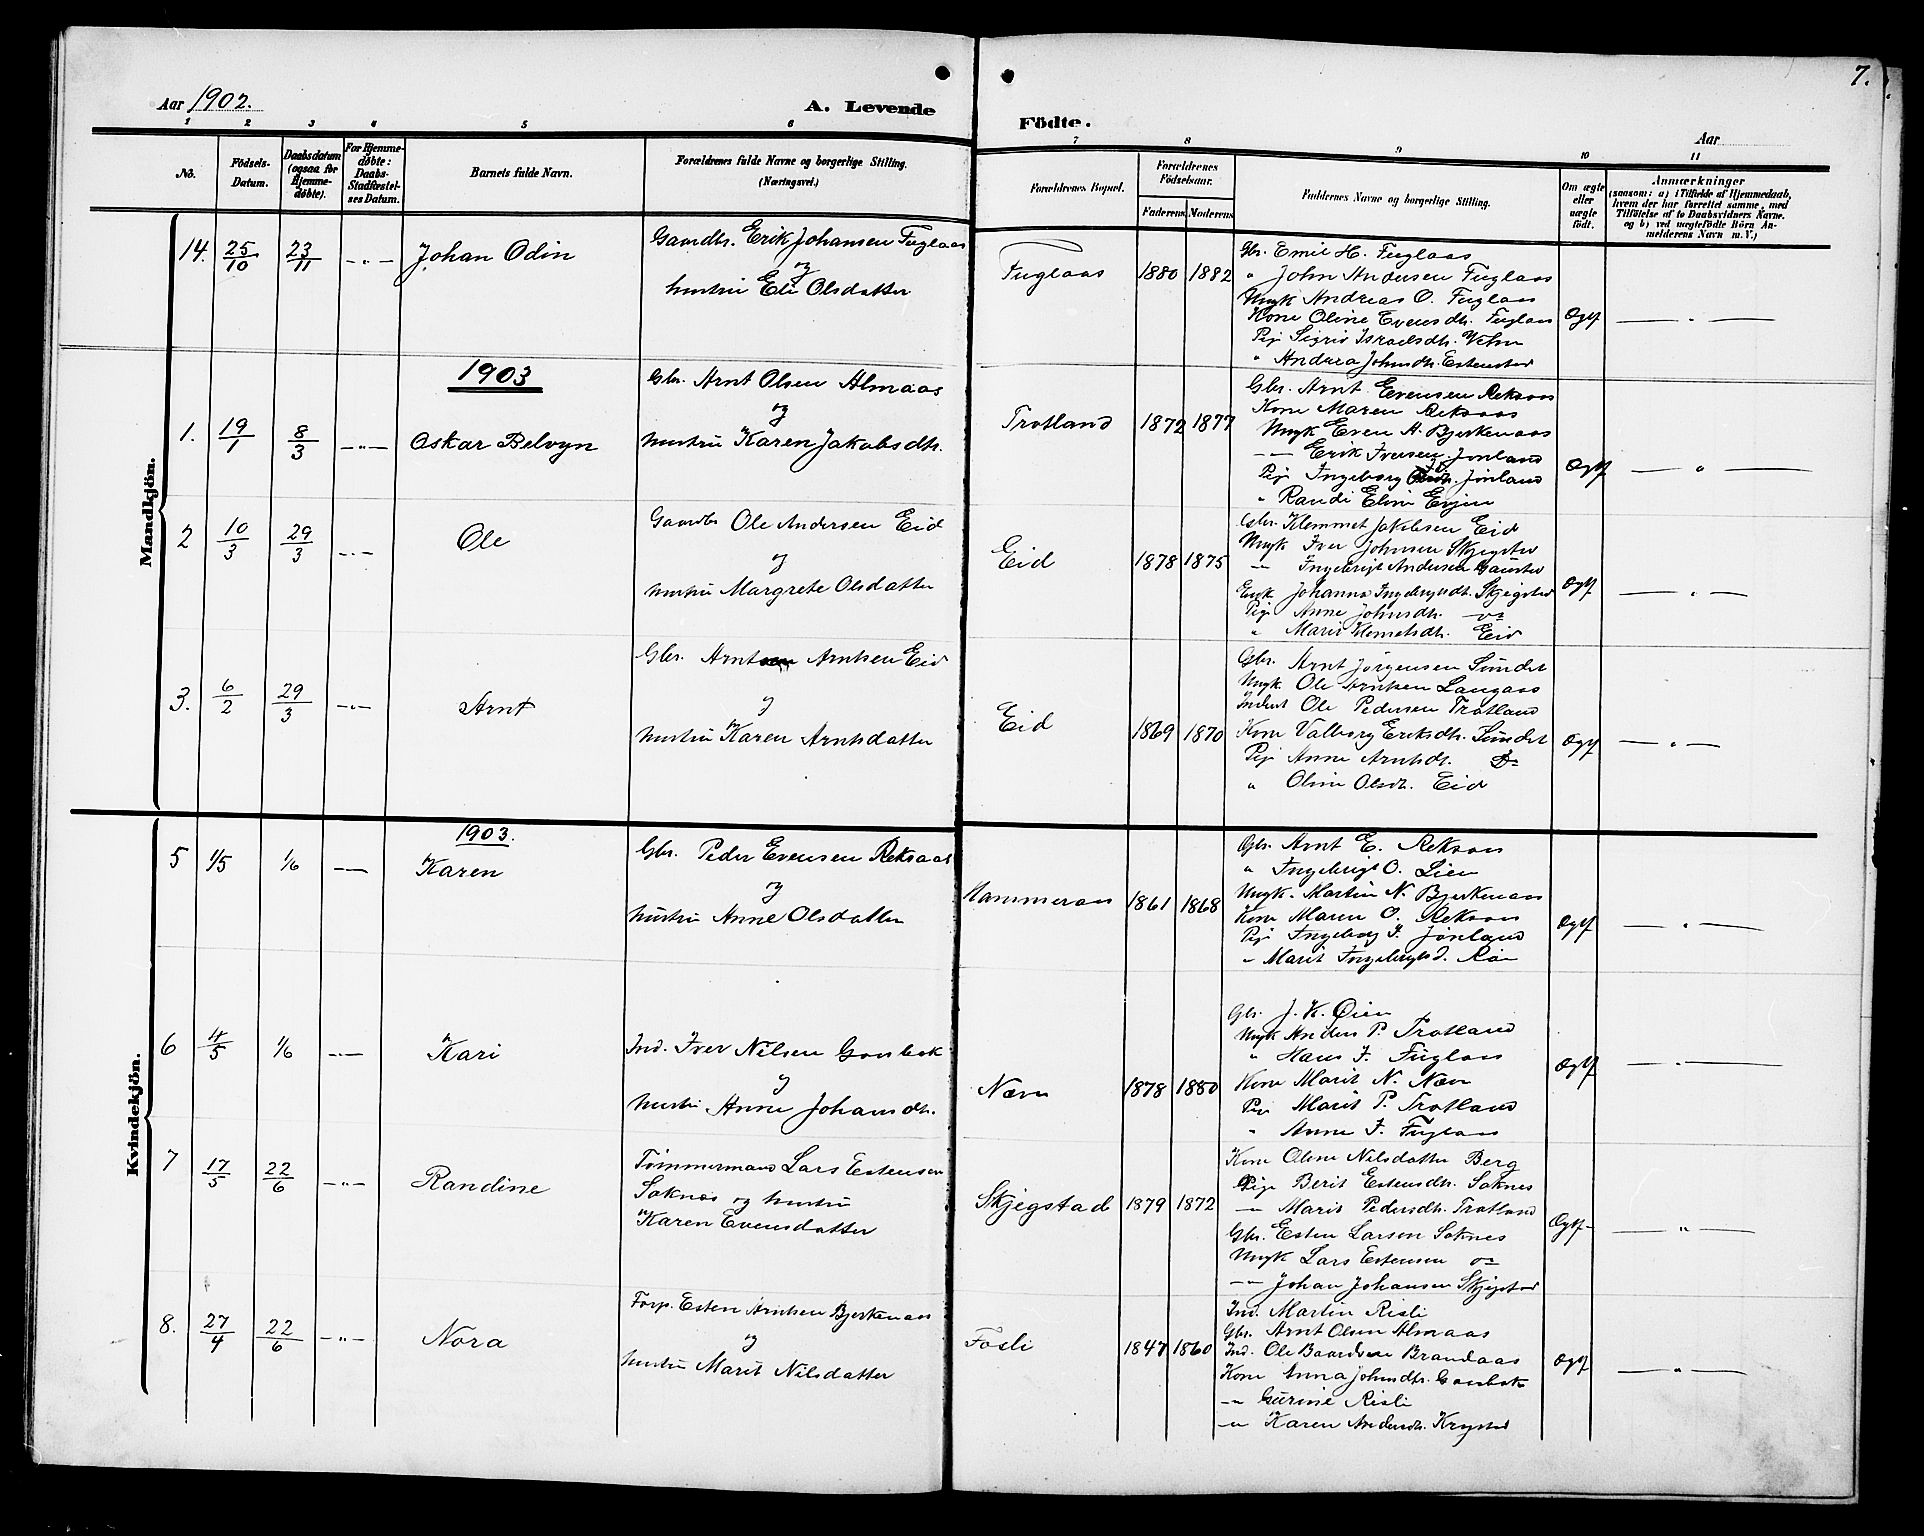 7.
Aar 1902.
A. Levende
Födte.
Aar
1 2 3 4 5 6 7 8 9 10 11
No.
Födsels-
Datum.
Daabsdatum
(ogsaa for
Hjemme-
døbte).
For Hjemme-
døbte:
Daabs-
Stadfæstel-
ses Datum.
Barnets fulde Navn.
Forældrenes fulde Navne og borgerlige Stilling.
(Næringsvei.)
Forældrenes Bopæl.
Forældrenes
Födselsaar.
Faderens Moderens
Faddernes Navne og borgerlige Stilling.
Om ægte
eller
uægte
født.
Anmærkninger
(saasom: a) i Tilfælde af Hjemmedaab,
hvem der har forrettet samme, med
Tilføielse af to Daabsvidners Navne.
og b) ved uægtefödte Börn An-
melderens Navn m. V.)
Mandkjön.
14. 25/10 23/11 -"- Johan Odin
Gaardbr. Erik Johansen Fuglaas
og
hustru Eli Olsdatter
Fuglaas 1880 1882
Gbr. Emil H. Fuglaas
" John Andersen Fuglaas
Ungk Andreas O. Fuglaas
Kone Oline Evensdtr. Fuglaas
Pige Sigrid Israelsdtr.
" Andrea Johnsdtr. Estenstad
Ægtf — " —
1903
1. 19/1 8/3 -"- Oskar Belvyn
Gbr. Arnt Olsen Almaas
og
hustru Karen Jakobsdtr.
Trotland 1872 1877
Gbr. Arnt Evensen Reksaas
Kone Maren Reksaas
Ungk Even A. Bjerkenaas
-"- Erik Iversen Jonland
Pige Ingeborg Jönland
" Randi Eline
Ægtf — " —
2 10/3 29/3 -"- Ole
Gaardbr Ole Andersen Eid
og
hustru Margrete Olsdatter
Eid 1878 1875
Gbr. Klemmet Jakobsen Eid
Ungk Iver Johnsen Skjegstad
-"- Ingebrigt Andersen
Enk Johanna Ingebrigtsdtr. Skjegstad
Pige Anne Johnsdtr. do
" Marit Klemetsdtr. Eid
Ægtf — " —
3. 6/2 29/3 -"- Arnt
Gbr. Arnt Arntsen Eid
og
hustru Karen Arntsdatter
Eid 1869 1870
Gbr. Arnt Jörgensen Sundet
Ungk. Ole Arntsen Langaas
Inderst Ole Pedersen Trotland
Kone Valborg Eriksdtr. Sundet
Pige Anne Arntsdtr. Do
" Oline Olsdtr. Eid
Ægtf — " —
Kvindekjön.
1903.
5 1/5 1/6 -"- Karen
Gbr. Peder Evensen Reksaas
og
hustru Anne Olsdatter
Hammeraas 1861 1868
Gbr. Arnt E. Reksaas
" Ingebrigt O. Lien
Ungk. Martin N. Bjerkenaas
Kone Maren O. Reksaas
Pige Ingeborg I. Jönland
" Marit Ingebrigtsd.
Ægtf — " —
6 4/5 1/6 -"- Kari
Ind. Iver Nilsen Gaubak
og
hustru Anne Johansdtr.
Næve 1878 1880
Gbr. J. K. Øien
Ungk Anders P. Trotland
" Hans J. Fuglaas
Kone Marit N. Næve
Pige Marit P. Trotland
" Anne J. Fuglaas
Ægtf — " —
7 17/5 22/6 -"- Randine
Tömmermand Lars Estensen
Soknes og hustru
Karen Evensdatter
Skjegstad 1879 1872
Kone Oline Nilsdatter Berg
Pige Berit Estensdtr. Soknes
-"- Marit Pedersdtr. Trotland
Gbr. Esten Larsen Soknes
Ungk Lars Estensen do
-"- Johan Johansen Skjegstad
Ægtf — " —
8. 27/4 22/6 -"- Nora
Forp. Esten Arntsen Bjerkenaas
og
hustru Marit Nilsdatter
Fosli 1847 1860
Ind. Martin Risli
Gbr. Arnt Olsen Almaas
Ind. Ole Baardsen Brandaas
Kone Anna Johnsdtr. Gaubak
-"- Gurine Risli
-"- Karen Andersdtr.
Ægtf — " —